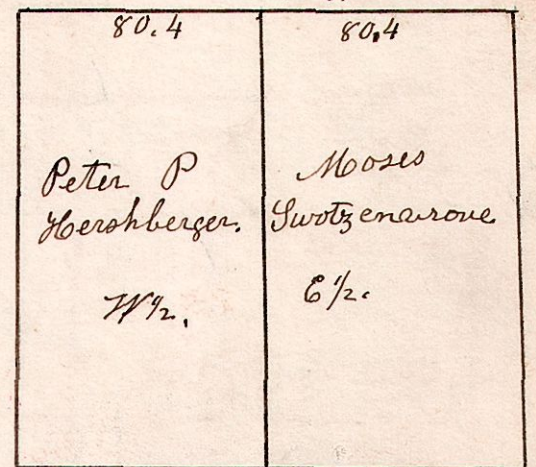 80.4
Peter P
Hershberger.
W½.
80.4
Moses
Swotzenarove
E½.